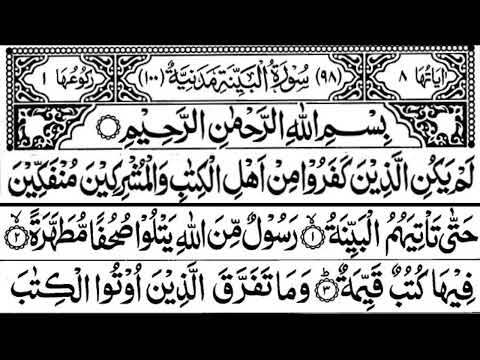 اٰیَاتُهَا ۸ (۹۸) سُوْرَةُ الْبَیِّنَةِ مَدَنِیَّةٌ (۱۰۰) رُكُوْعُهَا ۱
بِسْمِ اللّٰهِ الرَّحْمٰنِ الرَّحِیْمِ
لَمْ یَكُنِ الَّذِیْنَ كَفَرُوْا مِنْ اَهْلِ الْكِتٰبِ وَالْمُشْرِكِیْنَ مُنْفَكِّیْنَ
حَتّٰی تَاْتِیَهُمُ الْبَیِّنَةُ ۙ﴿۱﴾ رَسُوْلٌ مِّنَ اللّٰهِ یَتْلُوْا صُحُفًا مُّطَهَّرَةً ۙ﴿۲﴾
فِیْهَا كُتُبٌ قَیِّمَةٌ ؕ﴿۳﴾ وَمَا تَفَرَّقَ الَّذِیْنَ اُوْتُوا الْكِتٰبَ